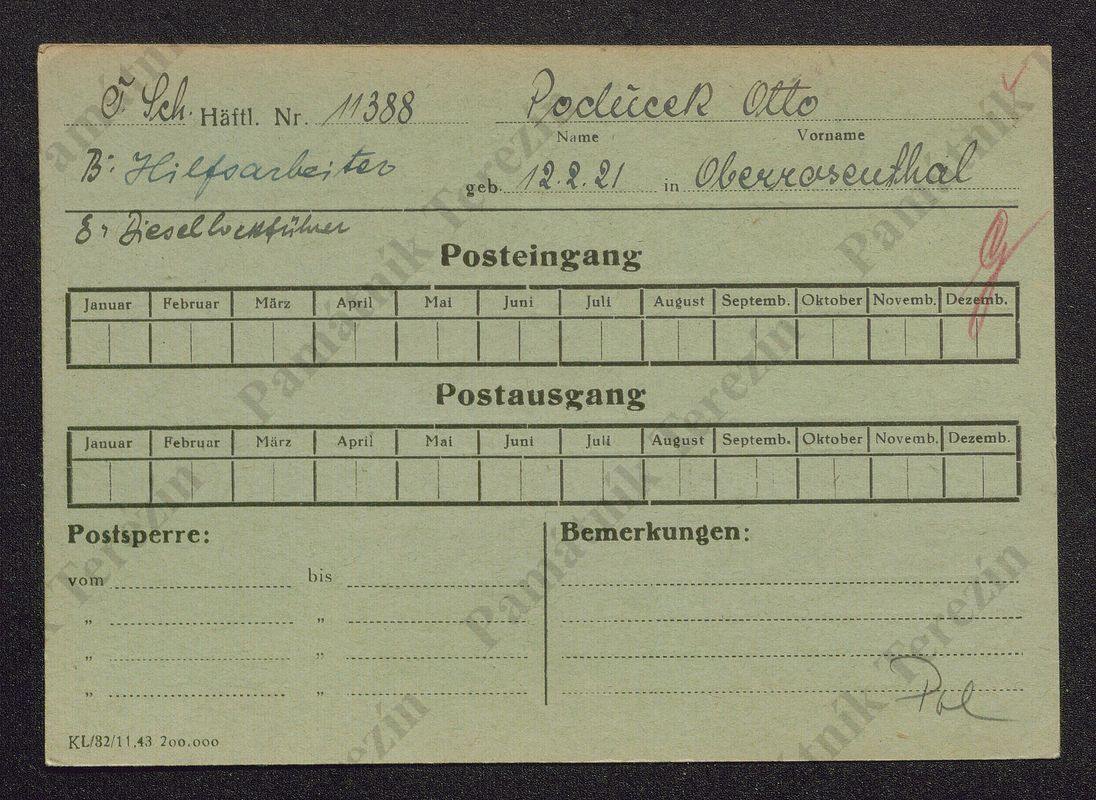 Č Sch. Häftl. Nr. 11388 Podúcek Otto
Name Vorname
B: Hilfsarbeiter geb. 12.2.21 in Oberrosenthal
E: Diesellockführer
Posteingang
Januar Februar März April Mai Juni Juli August Septemb. Oktober Novemb. Dezemb.
Postausgang
Januar Februar März April Mai Juni Juli August Septemb. Oktober Novemb. Dezemb.
Postsperre: Bemerkungen:
vom bis
„ „
„ „
„ „
Pol
KL/32/11.43 200.000
Památník Terezín